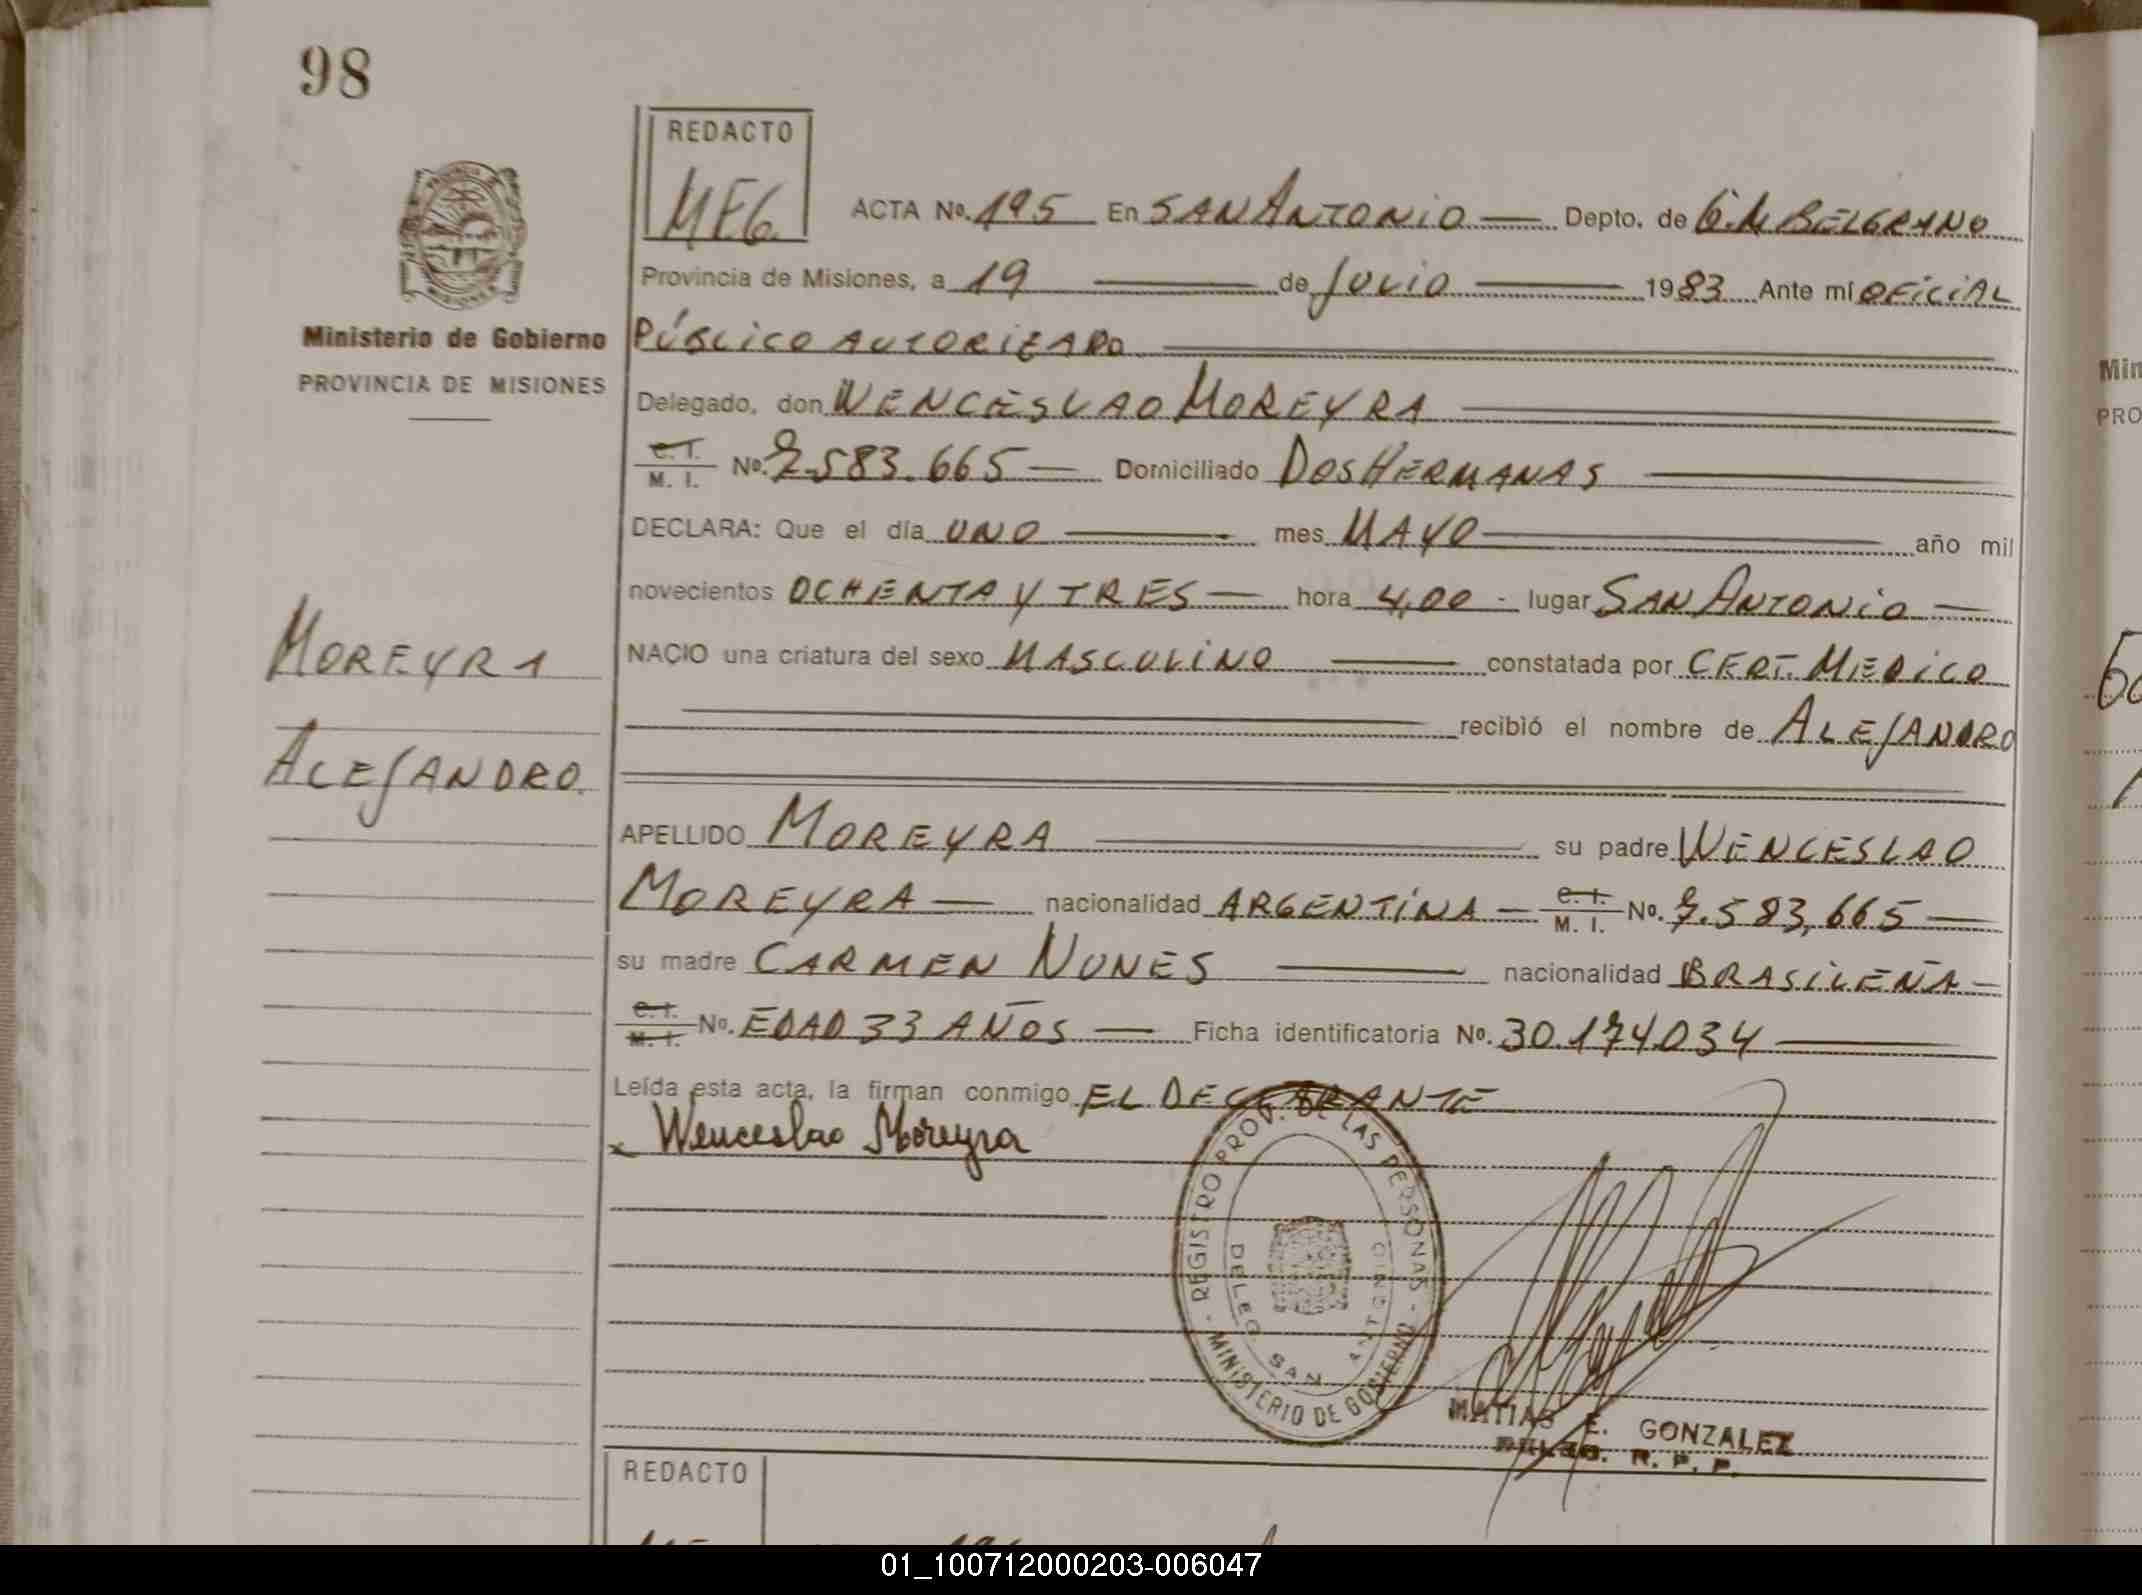 98
REDACTO
MEG.
ACTA Nº. 195 En SAN ANTONIO Depto. de G. M. BELGRANO
Provincia de Misiones, a 19 de JULIO 1983 Ante mí OFICIAL
Ministerio de Gobierno
PÚBLICO AUTORIZADO
PROVINCIA DE MISIONES
Delegado, don WENCESLAO MOREYRA
C. I.
M. I. Nº. 7.583.665 Domiciliado DOS HERMANAS
DECLARA: Que el día UNO mes MAYO año mil
novecientos OCHENTA Y TRES hora 4,00 - lugar SAN ANTONIO
MOREYRA
NACIO una criatura del sexo MASCULINO constatada por CERT. MEDICO
recibió el nombre de ALEJANDRO
ALEJANDRO.
APELLIDO MOREYRA su padre WENCESLAO
MOREYRA nacionalidad ARGENTINA C. I. M. I. Nº. 7.583,665
su madre CARMEN NUNES nacionalidad BRASILEÑA
C. I. M. I. Nº. EDAD 33 AÑOS Ficha identificatoria Nº. 30.174.034
Leída esta acta, la firman conmigo EL DECLARANTE
x Wenceslao Moreyra
REGISTRO PROV. DE LAS PERSONAS - MINISTERIO DE GOBIERNO -
DELEG. SAN ANTONIO
MATIAS E. GONZALEZ
DELEG. R. P. P.
REDACTO
Min
PRO
01_100712000203-006047